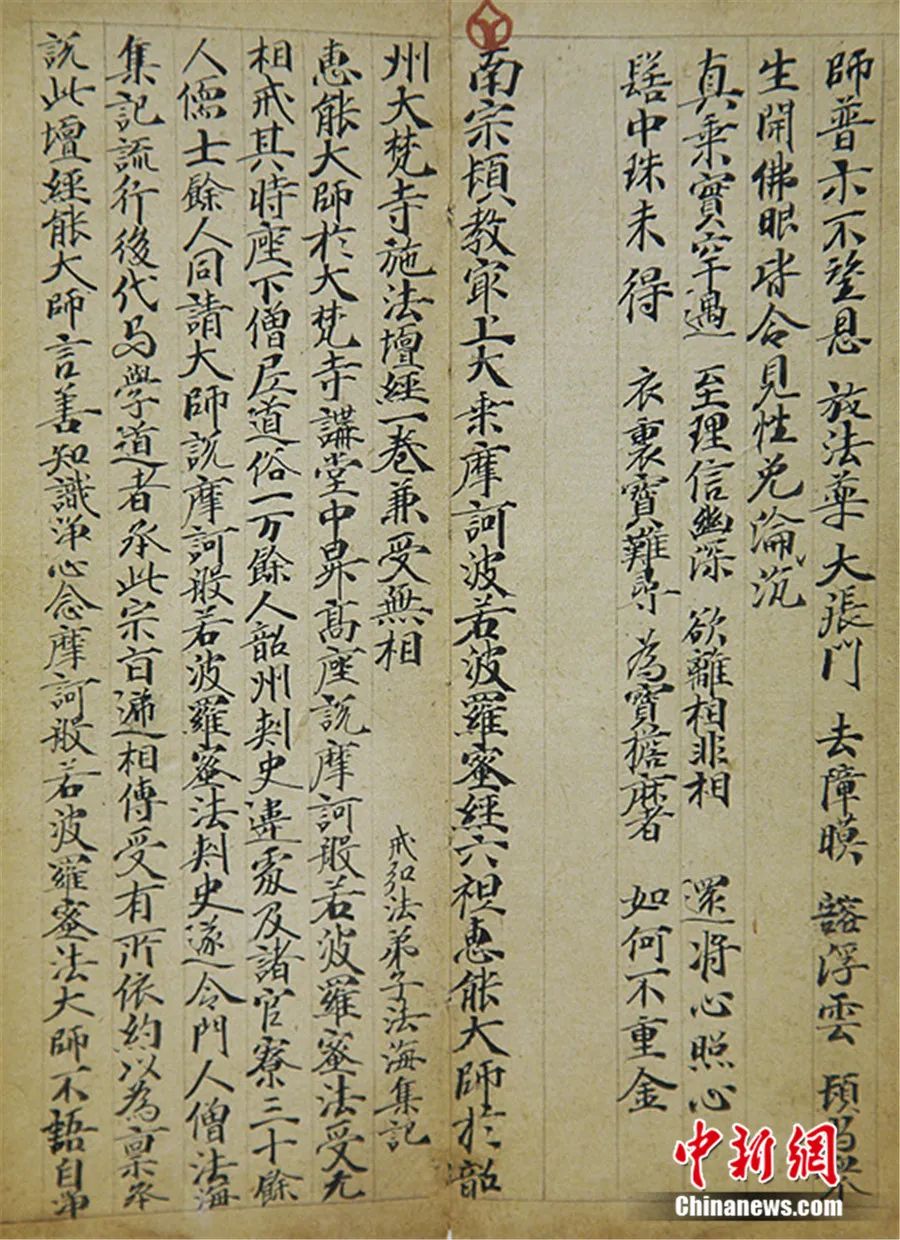 師普示不望恩 放法藥 大張門 去障膜 豁浮雲 頓為眾
生開佛眼 皆令見性免淪沉
真乘實罕遇 至理信幽深 欲離相非相 還將心照心
髻中珠未得 衣裏寶難尋 為寶擔麻者 如何不重金
南宗頓教最上大乘摩訶波若波羅蜜經六祖惠能大師於韶
州大梵寺施法壇經一卷兼受無相
戒弘法弟子法海集記
惠能大師於大梵寺講堂中昇高座說摩訶般若波羅蜜法受无
相戒其時座下僧尼道俗一万餘人韶州刾史違處及諸官寮三十餘
人儒士餘人同請大師說摩訶般若波羅蜜法刾史遂令門人僧法海
集記流行後代与學道者承此宗旨遞相傳受有所依約以為稟承
說此壇經能大師言善知識淨心念摩訶般若波羅蜜法大師不語自淨
中新網
Chinanews.com